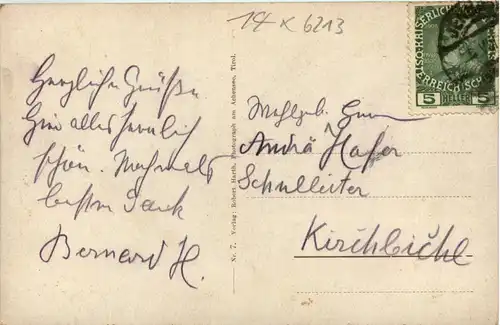 14 x 6213
Herzliche Grüße
Hier alles herrlich
schön. Nochmals
besten Dank
Bernard H.
Nr. 7. Verlag: Robert Harth, Photograph am Achensee, Tirol.
Wohlgeb. Herrn
Andrä Hafer
Schulleiter
Kirchbichl
5 5